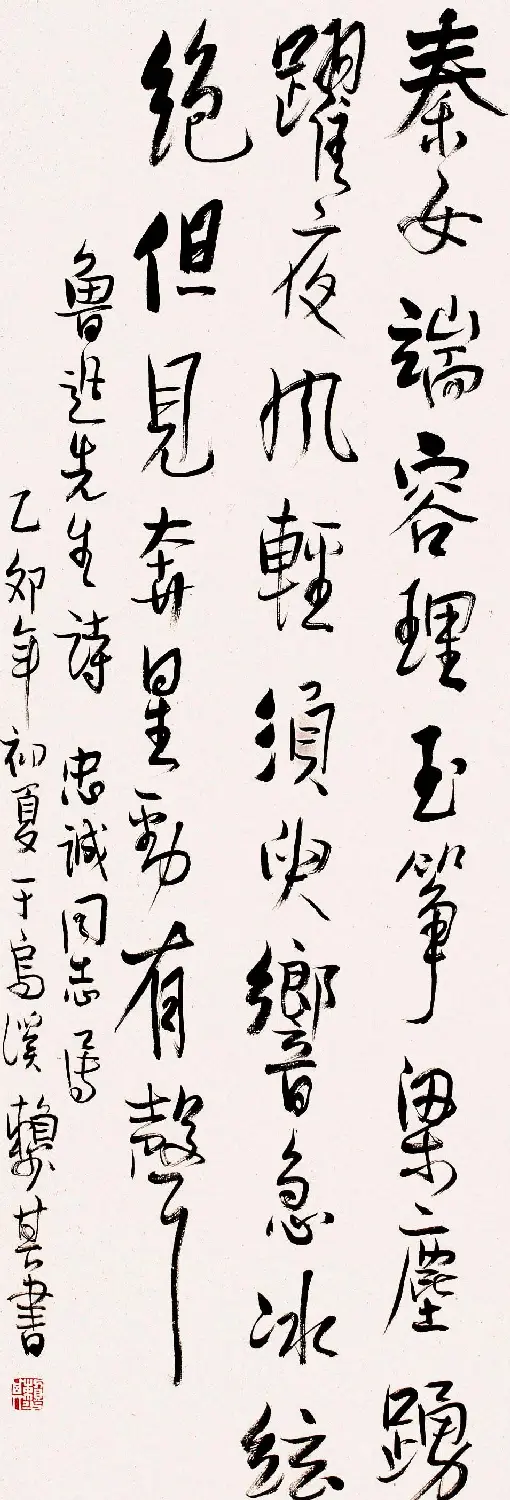 秦女端容理玉筝梁塵踴
躍夜风輕須臾響急冰絃
絶但見奔星勁有聲
魯迅先生詩 忠誠同志属
乙卯年初夏于烏溪賴少其書